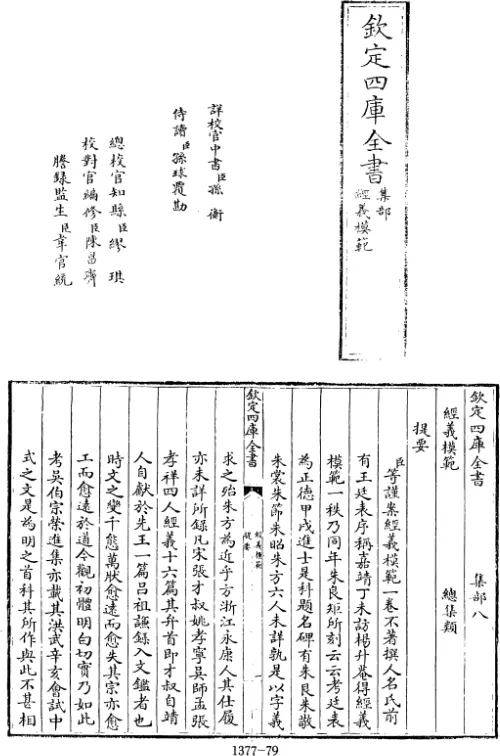 欽定四庫全書
集部
經義模範
詳校官中書臣孫衡
侍讀臣孫球覆勘
總校官知縣臣繆琪
校對官編修臣陳昌齊
謄錄監生臣韋官統
欽定四庫全書 集部八
經義模範 總集類
提要
臣等謹案經義模範一卷不著撰人名氏前
有王廷表序稱嘉靖丁未訪楊升菴得經義
模範一秩乃同年朱良矩所刻云云考廷表
為正德甲戌進士是科題名碑有朱良朱敬
朱裳朱節朱昭朱方六人未詳孰是以字義
欽定四庫全書
經義模範
提要
求之殆朱方為近乎方浙江永康人其仕履
亦未詳所錄凡宋張才叔姚孝寧吳師孟張
孝祥四人經義十六篇其弁首即才叔自靖
人自獻於先王一篇吕祖謙錄入文鑑者也
時文之變千態萬狀愈遠而愈失其宗亦愈
工而愈遠於道今觀初體明白切實乃如此
考吳伯宗榮進集亦載其洪武辛亥會試中
式之文是為明之首科其所作與此不甚相
1377-79